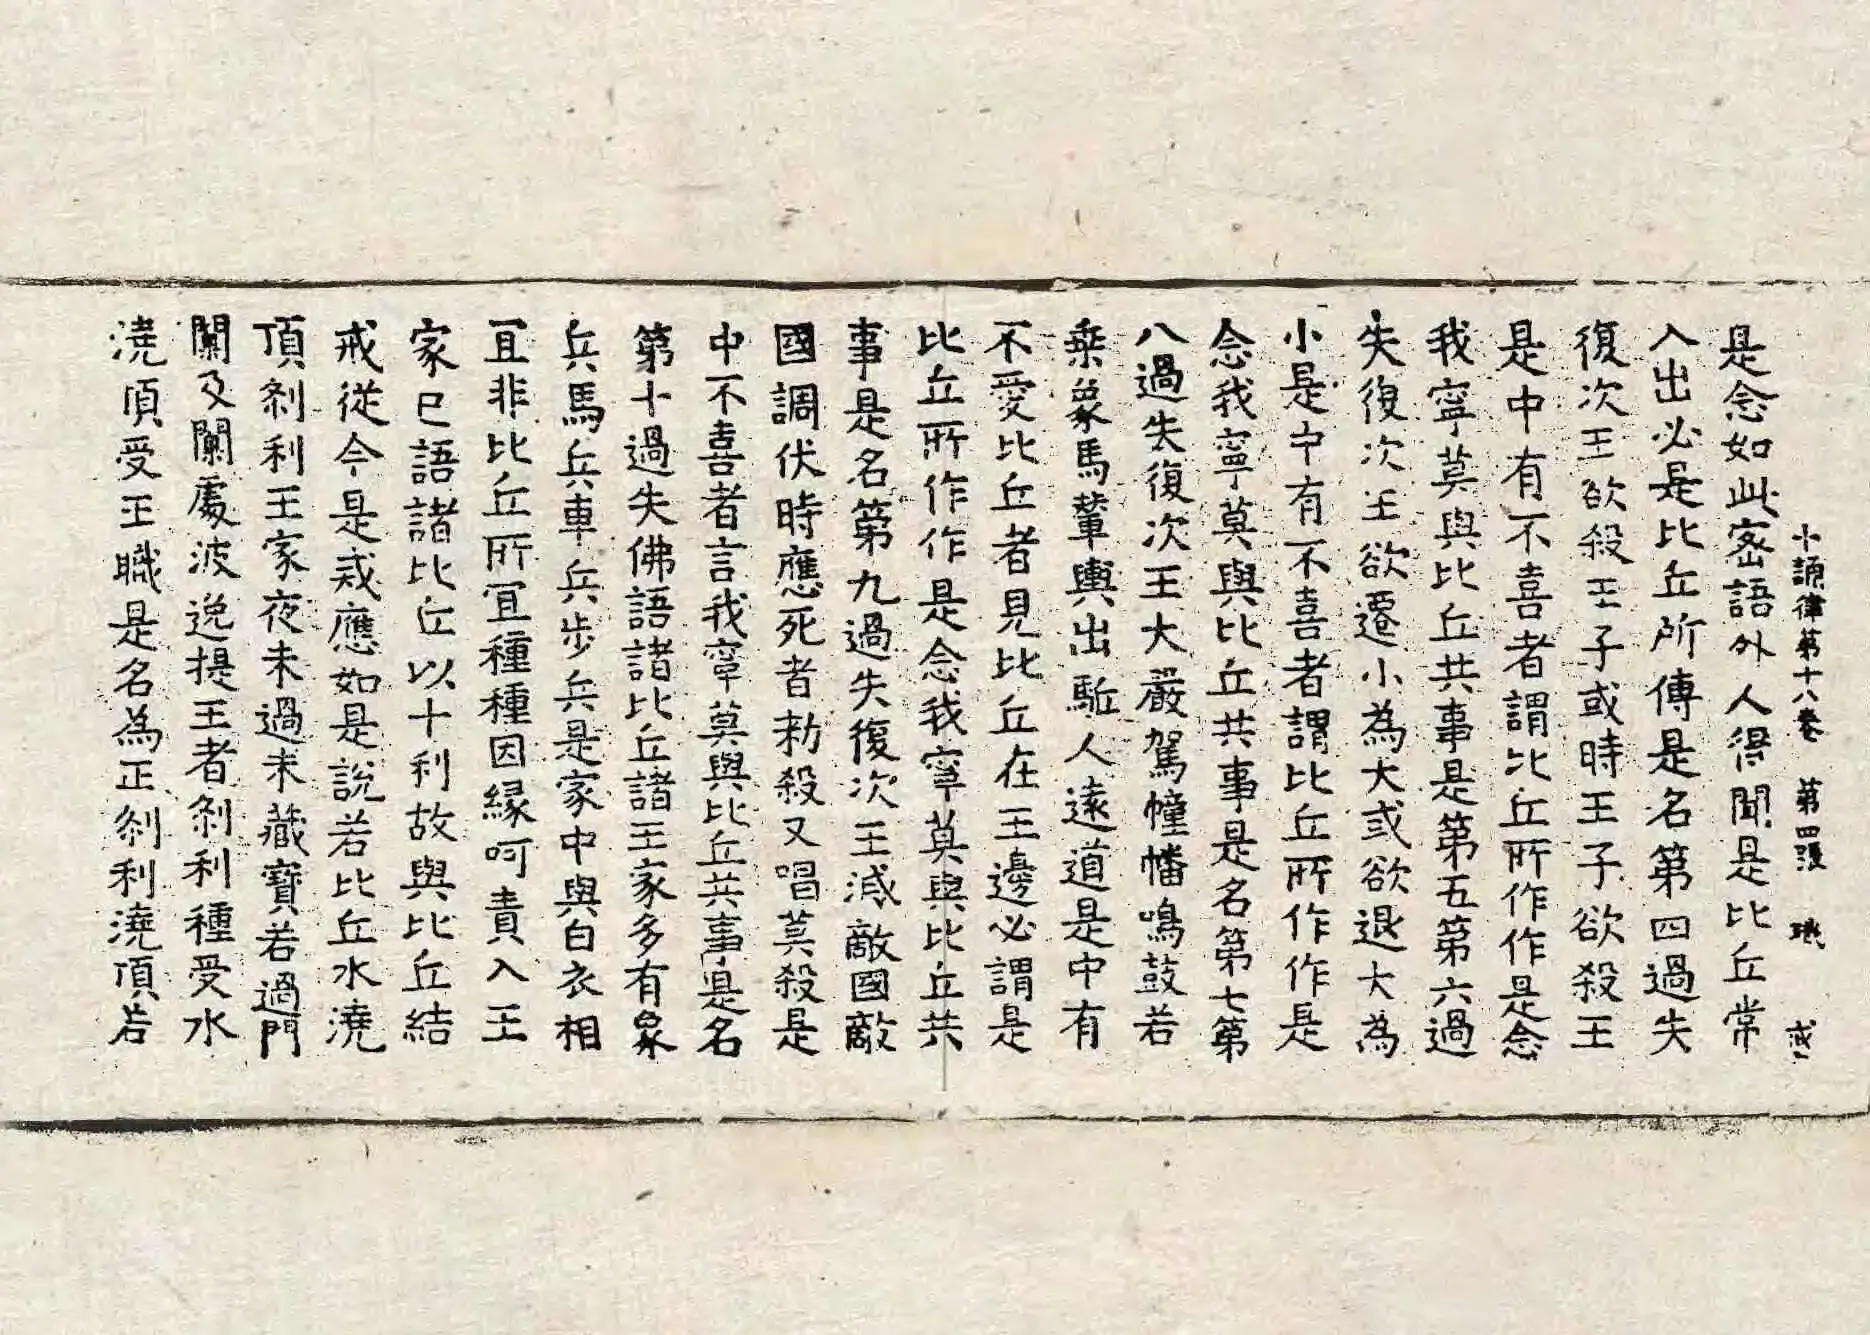 十誦律第十八卷 第四張 職
是念如此密語外人得聞是比丘常
入出必是比丘所傳是名第四過失
復次王欲殺王子或時王子欲殺王
是中有不喜者謂比丘所作作是念
我寧莫與比丘共事是名第五第六過
失復次王欲遷小為大或欲退大為
小是中有不喜者謂比丘所作作是
念我寧莫與比丘共事是名第七第
八過失復次王大嚴駕幢幡鳴鼓若
乗象馬輦輿出駈人遠道是中有
不愛比丘者見比丘在王邊必謂是
比丘所作作是念我寧莫與比丘共
事是名第九過失復次王滅敵國敵
國調伏時應死者勑殺又唱莫殺是
中不喜者言我寧莫與比丘共事是名
第十過失佛語諸比丘諸王家多有象
兵馬兵車兵步兵是家中與白衣相
冝非比丘所冝種種因緣呵責入王
家已語諸比丘以十利故與比丘結
戒從今是戒應如是說若比丘水澆
頂剎利王家夜未過未藏寶若過門
闑及闑處波逸提王者剎利種受水
澆頂受王職是名為王剎利澆頂若